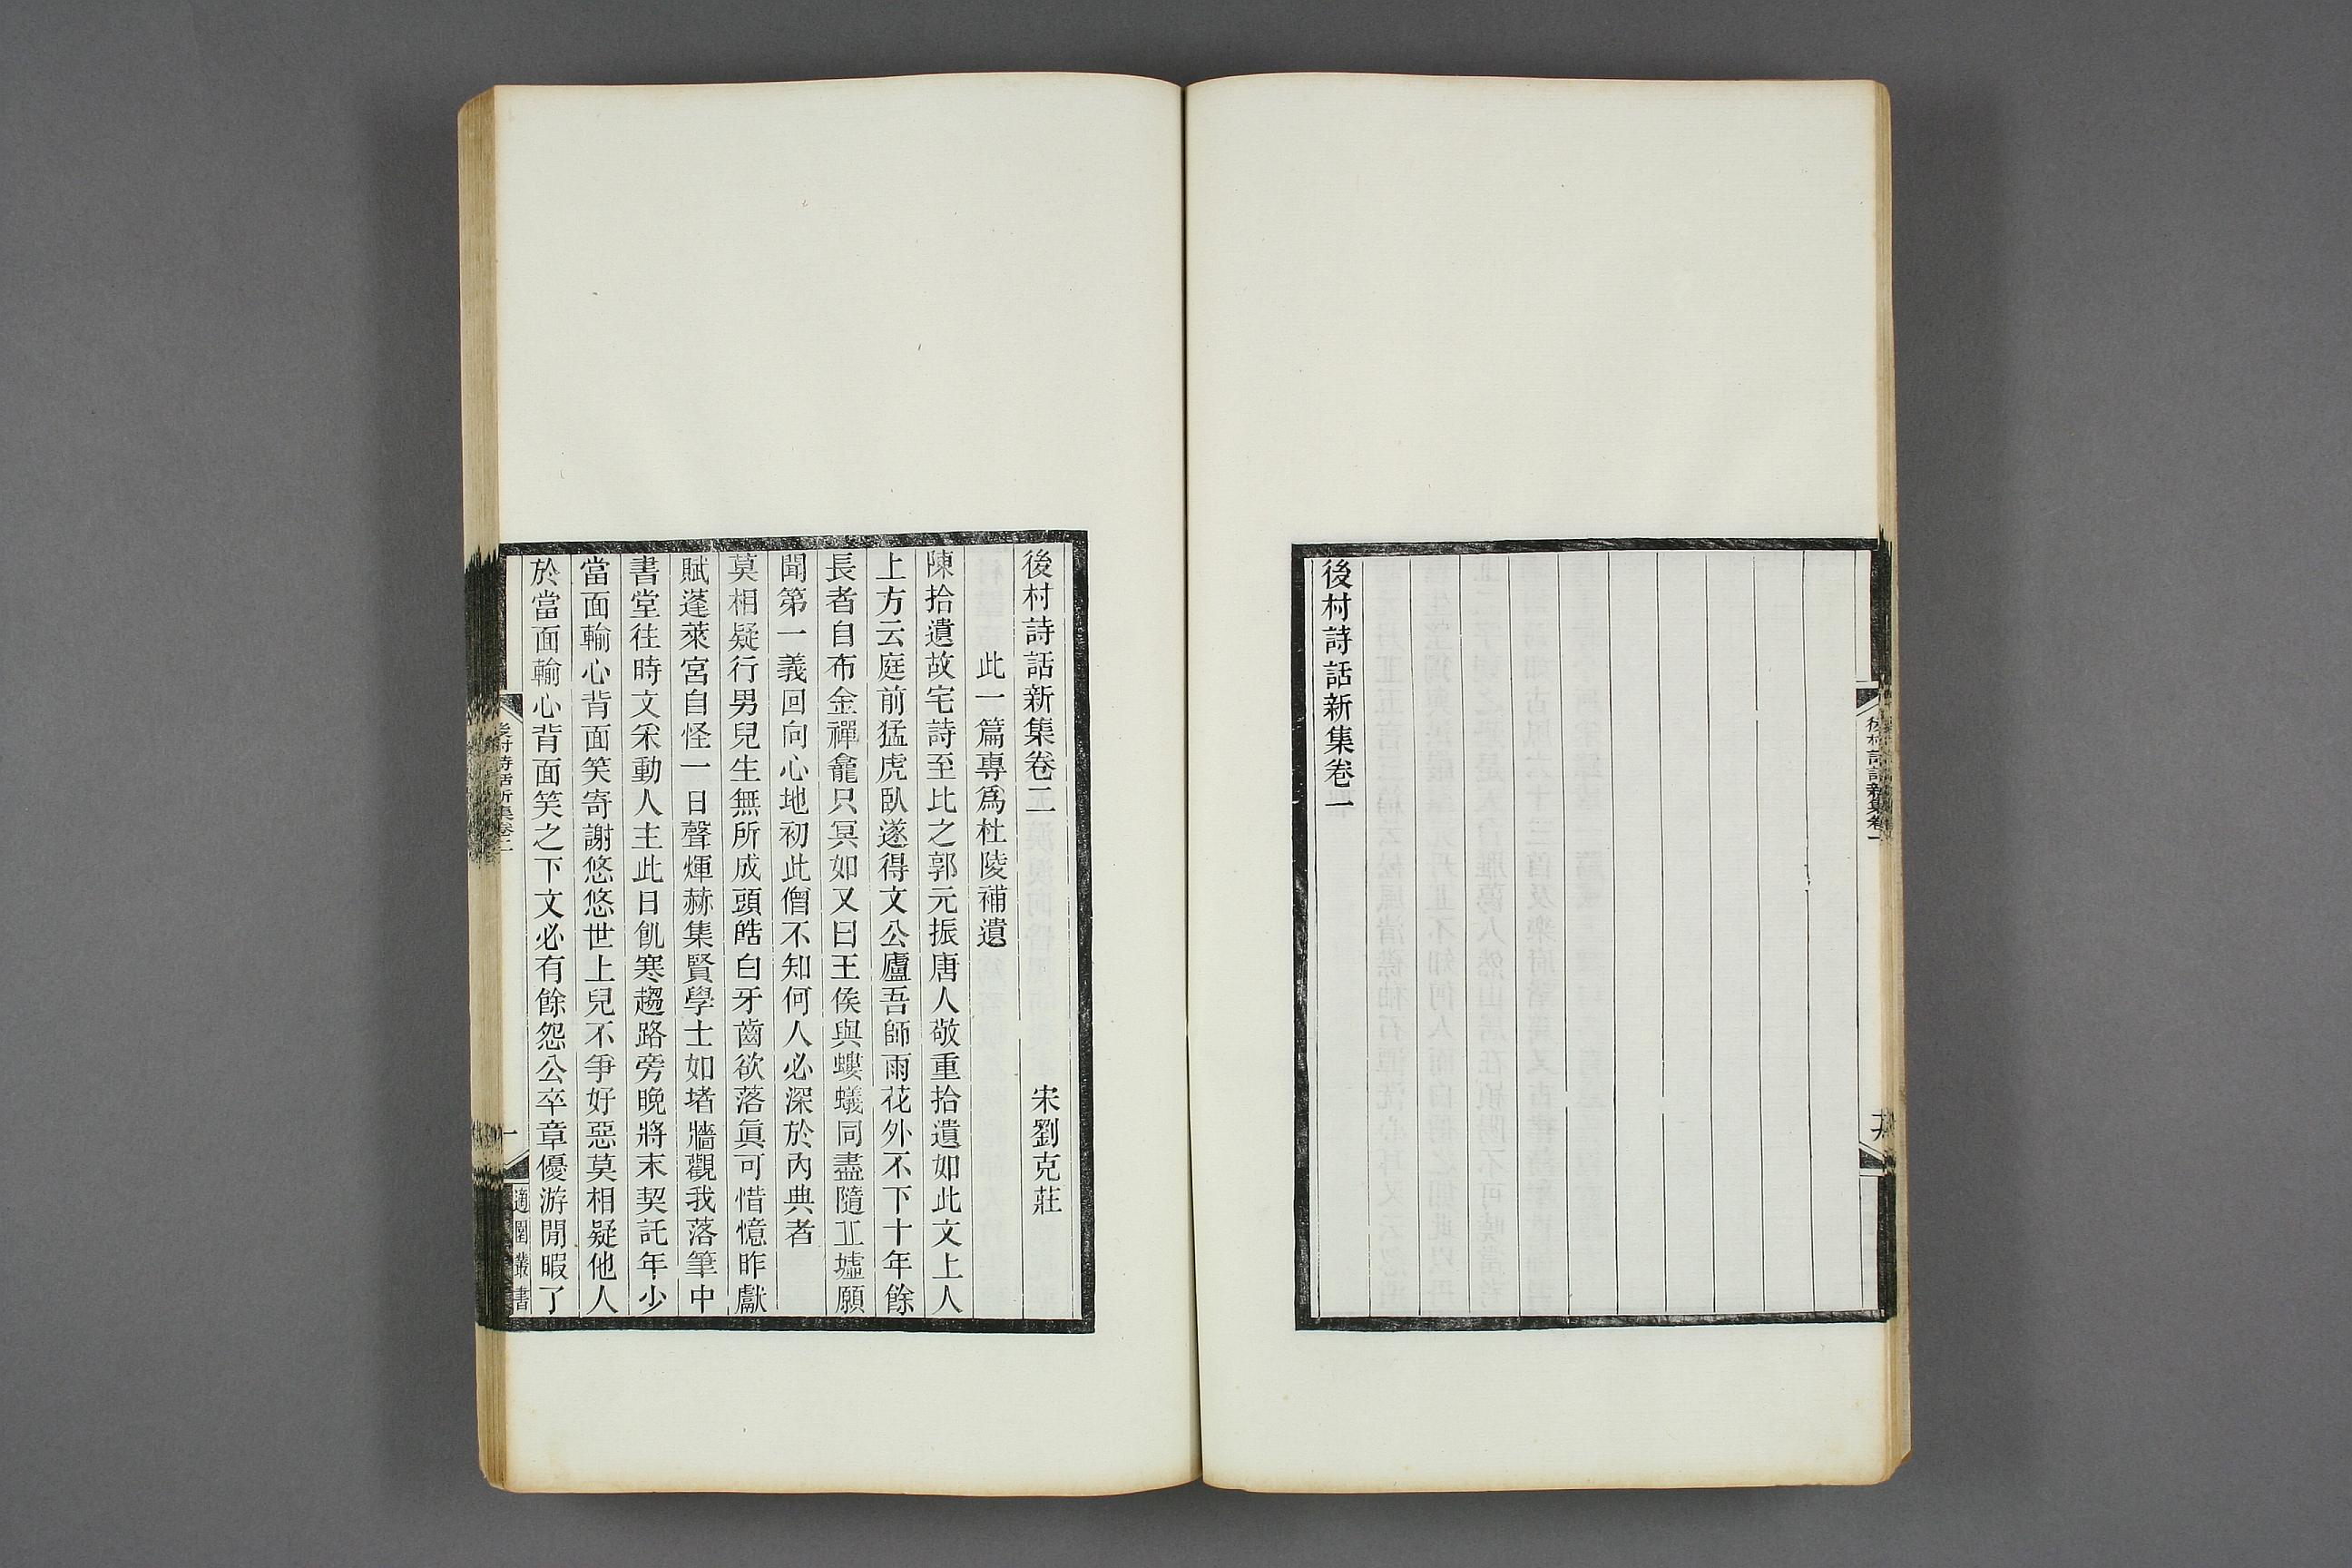 後村詩話新集卷一
後村詩話新集卷一
後村詩話新集卷二
宋劉克莊
此一篇專爲杜陵補遺
陳拾遺故宅詩至比之郭元振唐人敬重拾遺如此文上人
上方云庭前猛虎臥遂得文公廬吾師雨花外不下十年餘
長者自布金禪龕只冥如又曰王侯與螻蟻同盡隨丠墟願
聞第一義回向心地初此僧不知何人必深於內典者
莫相疑行男兒生無所成頭皓白牙齒欲落眞可惜憶昨獻
賦蓬萊宮自怪一日聲煇赫集賢學士如堵牆觀我落筆中
書堂往時文采動人主此日飢寒趨路旁晚將末契託年少
當面輸心背面笑寄謝悠悠世上兒不爭好惡莫相疑他人
於當面輸心背面笑之下文必有餘怨公卒章優游閒暇了
後村詩話新集卷二
一
適園叢書